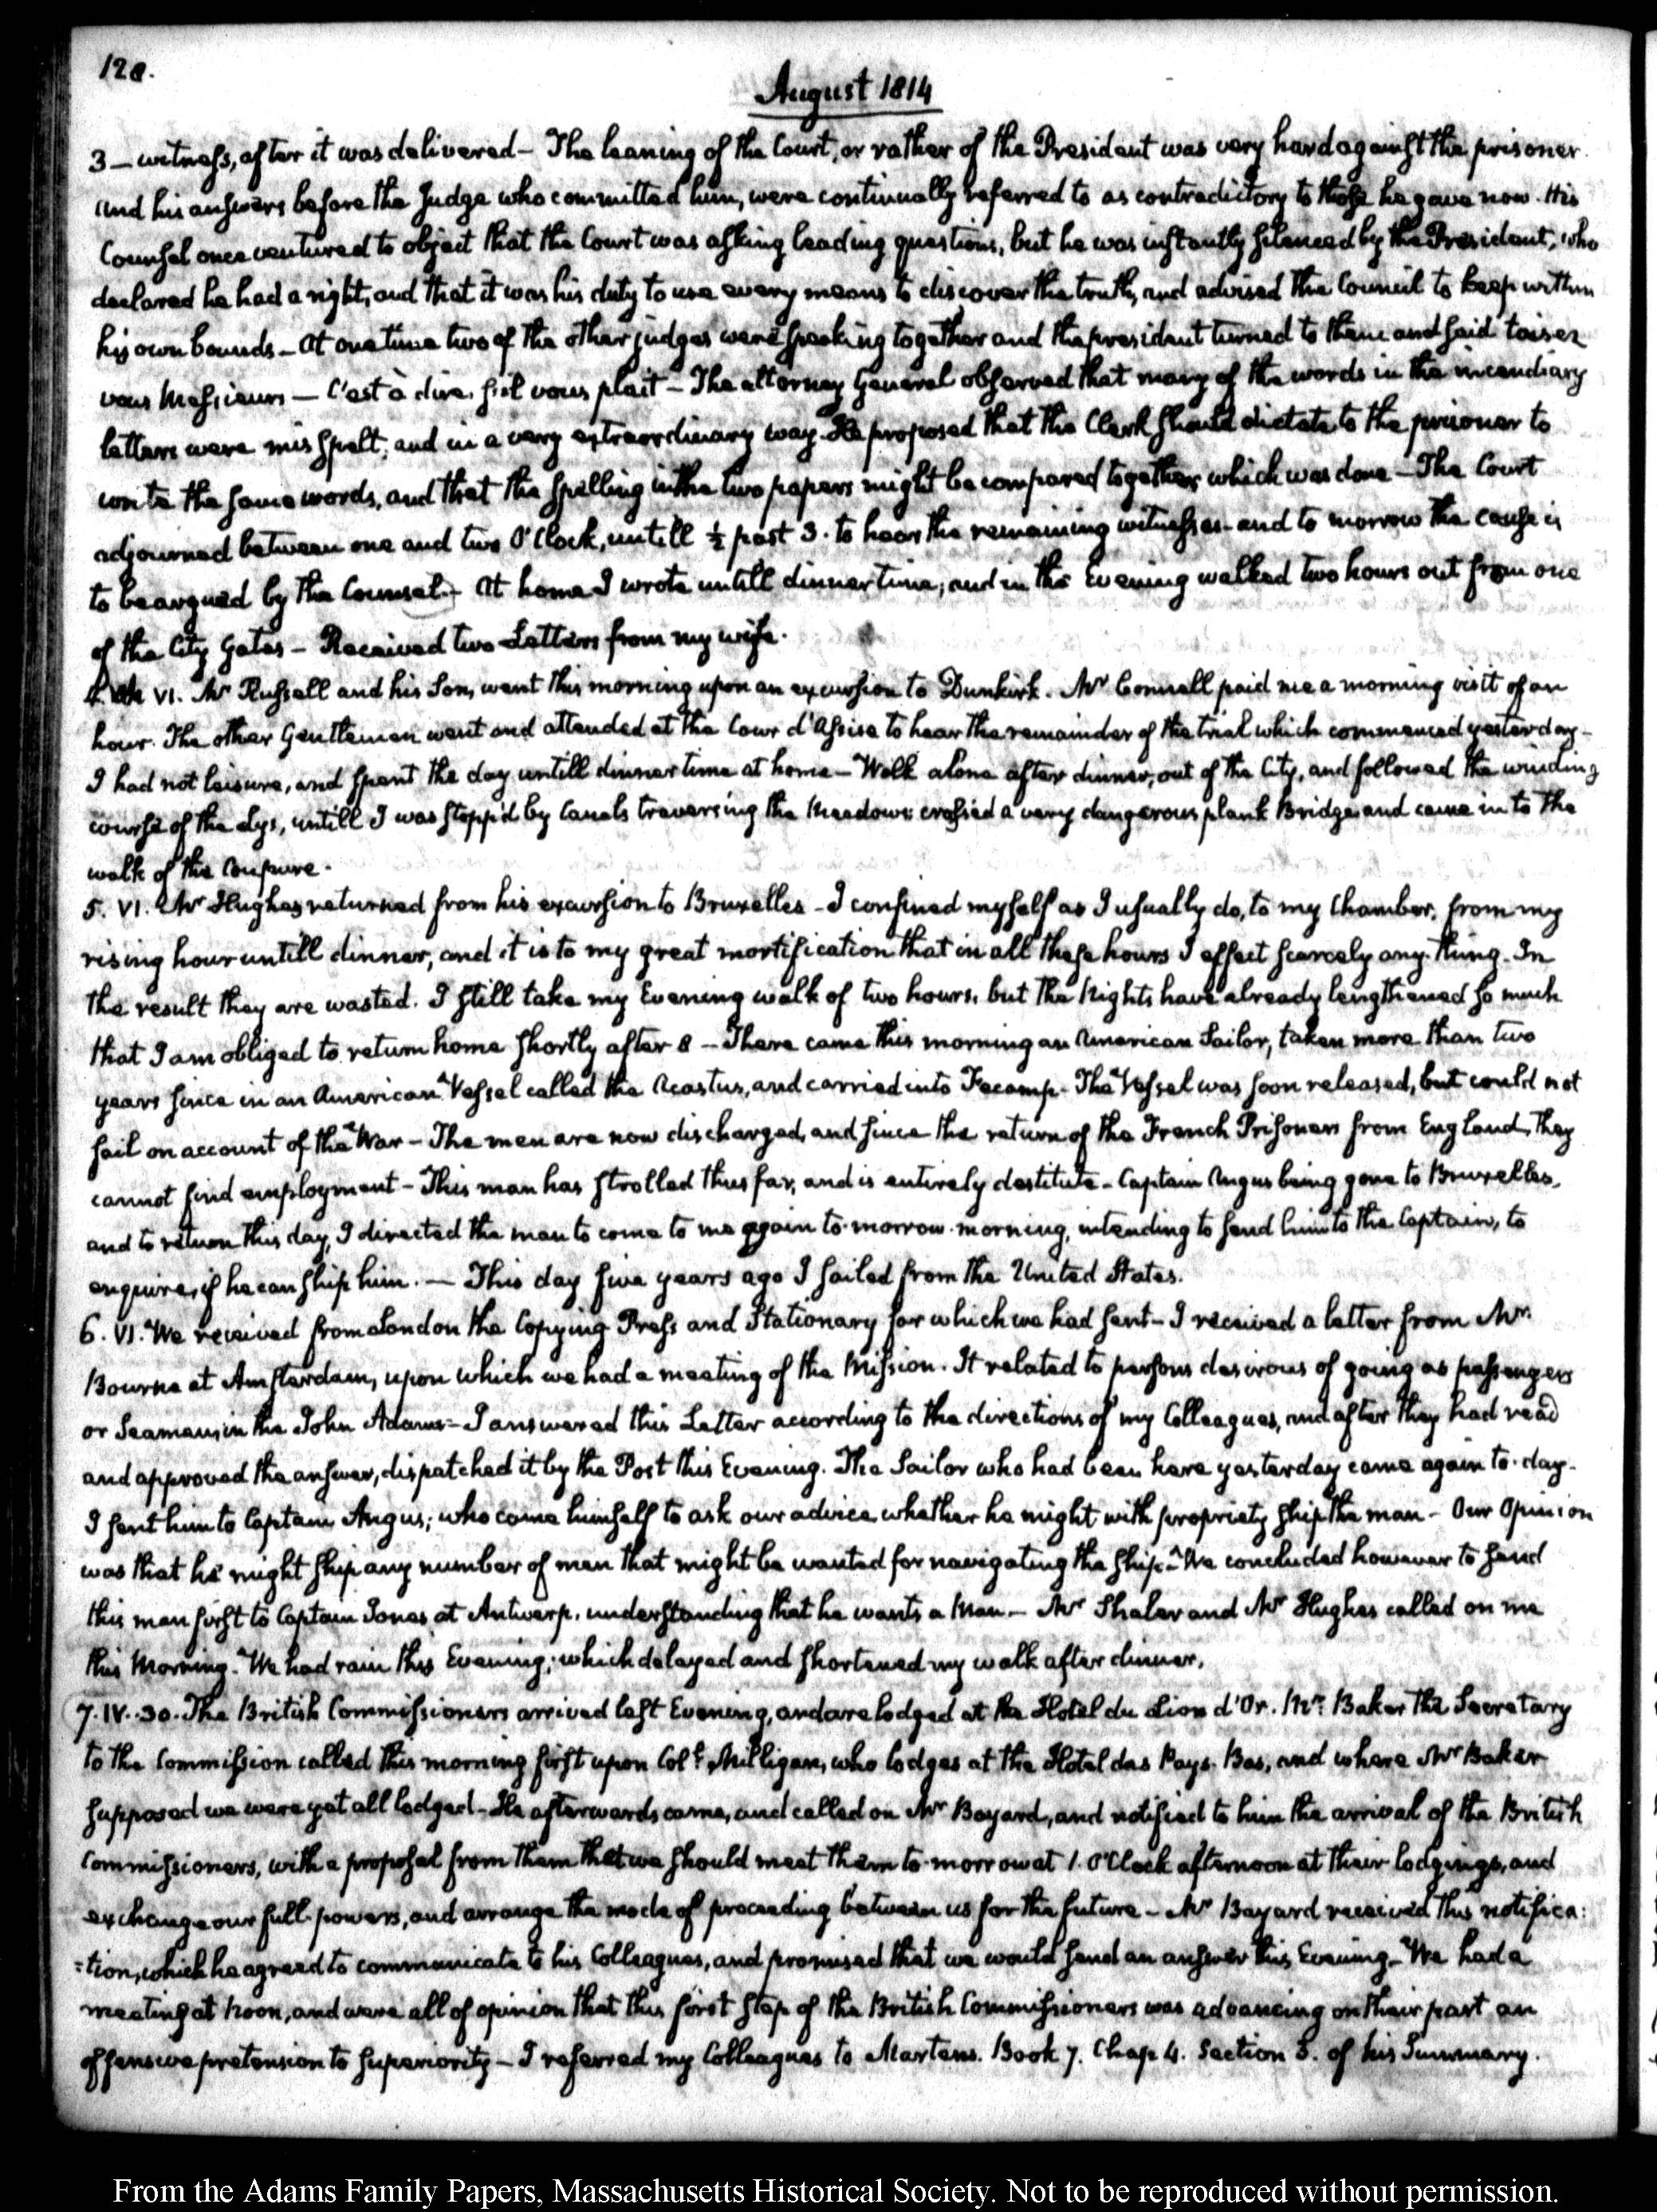 120.
August 1814
3 — witness, after it was delivered — The leaning of the Court, or rather of the President was very hard against the prisoner.
and his answers before the Judge who committed him, were continually referred to as contradictory to those he gave now. His
Counsel once ventured to object that the Court was asking leading questions, but he was instantly silenced by the President, who
declared he had a right, and that it was his duty to use every means to discover the truth, and advised the Council to keep within
his own bounds — At one time two of the other judges were speaking together and the president turned to them and said taisez
vous Messieurs — C'est à dire, s'il vous plait — The attorney General observed that many of the words in the incendiary
letters were mis spelt, and in a very extraordinary way. He proposed that the Clerk should dictate to the prisoner to
write the same words, and that the spelling in the two papers might be compared together, which was done — The Court
adjourned between one and two O'Clock, untill ½ past 3. to hear the remaining witnesses — and to morrow the cause is
to be argued by the Counsel. — At home I wrote untill dinner time, and in the Evening walked two hours out from one
of the City Gates — Received two Letters from my wife.
4. VI. Mr Russell and his Son, went this morning upon an excursion to Dunkirk. Mr Connell paid me a morning visit of an
hour. The other Gentlemen went and attended at the Cour d'Assise to hear the remainder of the trial which commenced yesterday —
I had not leisure, and spent the day untill dinner time at home — Walk alone after dinner, out of the City, and followed the winding
course of the Lys, untill I was stopp'd by Canals traversing the Meadows crossed a very dangerous plank Bridge and came in to the
walk of the Coupure.
5. VI. Mr Hughes returned from his excursion to Bruxelles — I confined myself as I usually do, to my Chamber, from my
rising hour untill dinner, and it is to my great mortification that in all these hours I effect scarcely any thing. In
the result they are wasted. I still take my Evening walk of two hours, but the Nights have already lengthened so much
that I am obliged to return home shortly after 8 — There came this morning an American Sailor, taken more than two
years since in an American Vessel called the Acastus, and carried into Fecamp. The Vessel was soon released, but could not
sail on account of the War — The men are now discharged, and since the return of the French Prisoners from England, they
cannot find employment — This man has strolled thus far, and is entirely destitute — Captain Angus being gone to Bruxelles,
and to return this day, I directed the man to come to me again to-morrow morning, intending to send him to the Captain, to
enquire, if he can ship him. — This day five years ago I sailed from the United States.
6. VI. We received from London the Copying Press and Stationary for which we had sent — I received a letter from Mr
Bourne at Amsterdam, upon which we had a meeting of the Mission. It related to persons desirous of going as passengers
or Seamen, in the John Adams — I answered this Letter according to the directions of my Colleagues, and after they had read
and approved the answer, dispatched it by the Post this Evening. The Sailor who had been here yesterday came again to-day.
I sent him to Captain Angus; who came himself to ask our advice whether he might with propriety ship the man — Our Opinion
was that he might ship any number of men that might be wanted for navigating the ship — We concluded however to send
this man first to Captain Jones, at Antwerp, understanding that he wants a Man — Mr Shaler and Mr Hughes called on me
this Morning. We had rain this Evening; which delayed and shortened my walk after dinner.
7. IV. 30. The British Commissioners arrived last Evening, and are lodged at the Hotel du Lion d'Or. Mr. Baker the Secretary
to the Commission called this morning first upon Coll. Milligan, who lodges at the Hotel des Pays-Bas, and where Mr Baker
supposed we were yet all lodged — He afterwards came, and called on Mr Bayard, and notified to him the arrival of the British
Commissioners, with a proposal from them that we should meet them to-morrow at 1. O'Clock afternoon at their lodgings, and
exchange our full powers, and arrange the mode of proceeding between us for the future — Mr Bayard received this notifica:
:tion, which he agreed to communicate to his Colleagues, and promised that we would send an answer this Evening — We had a
meeting at Noon, and were all of opinion that this first step of the British Commissioners was advancing on their part an
offensive pretension to superiority — I referred my Colleagues to Martens. Book 7. Chap 4. Section 3. of his Summary.
From the Adams Family Papers, Massachusetts Historical Society. Not to be reproduced without permission.